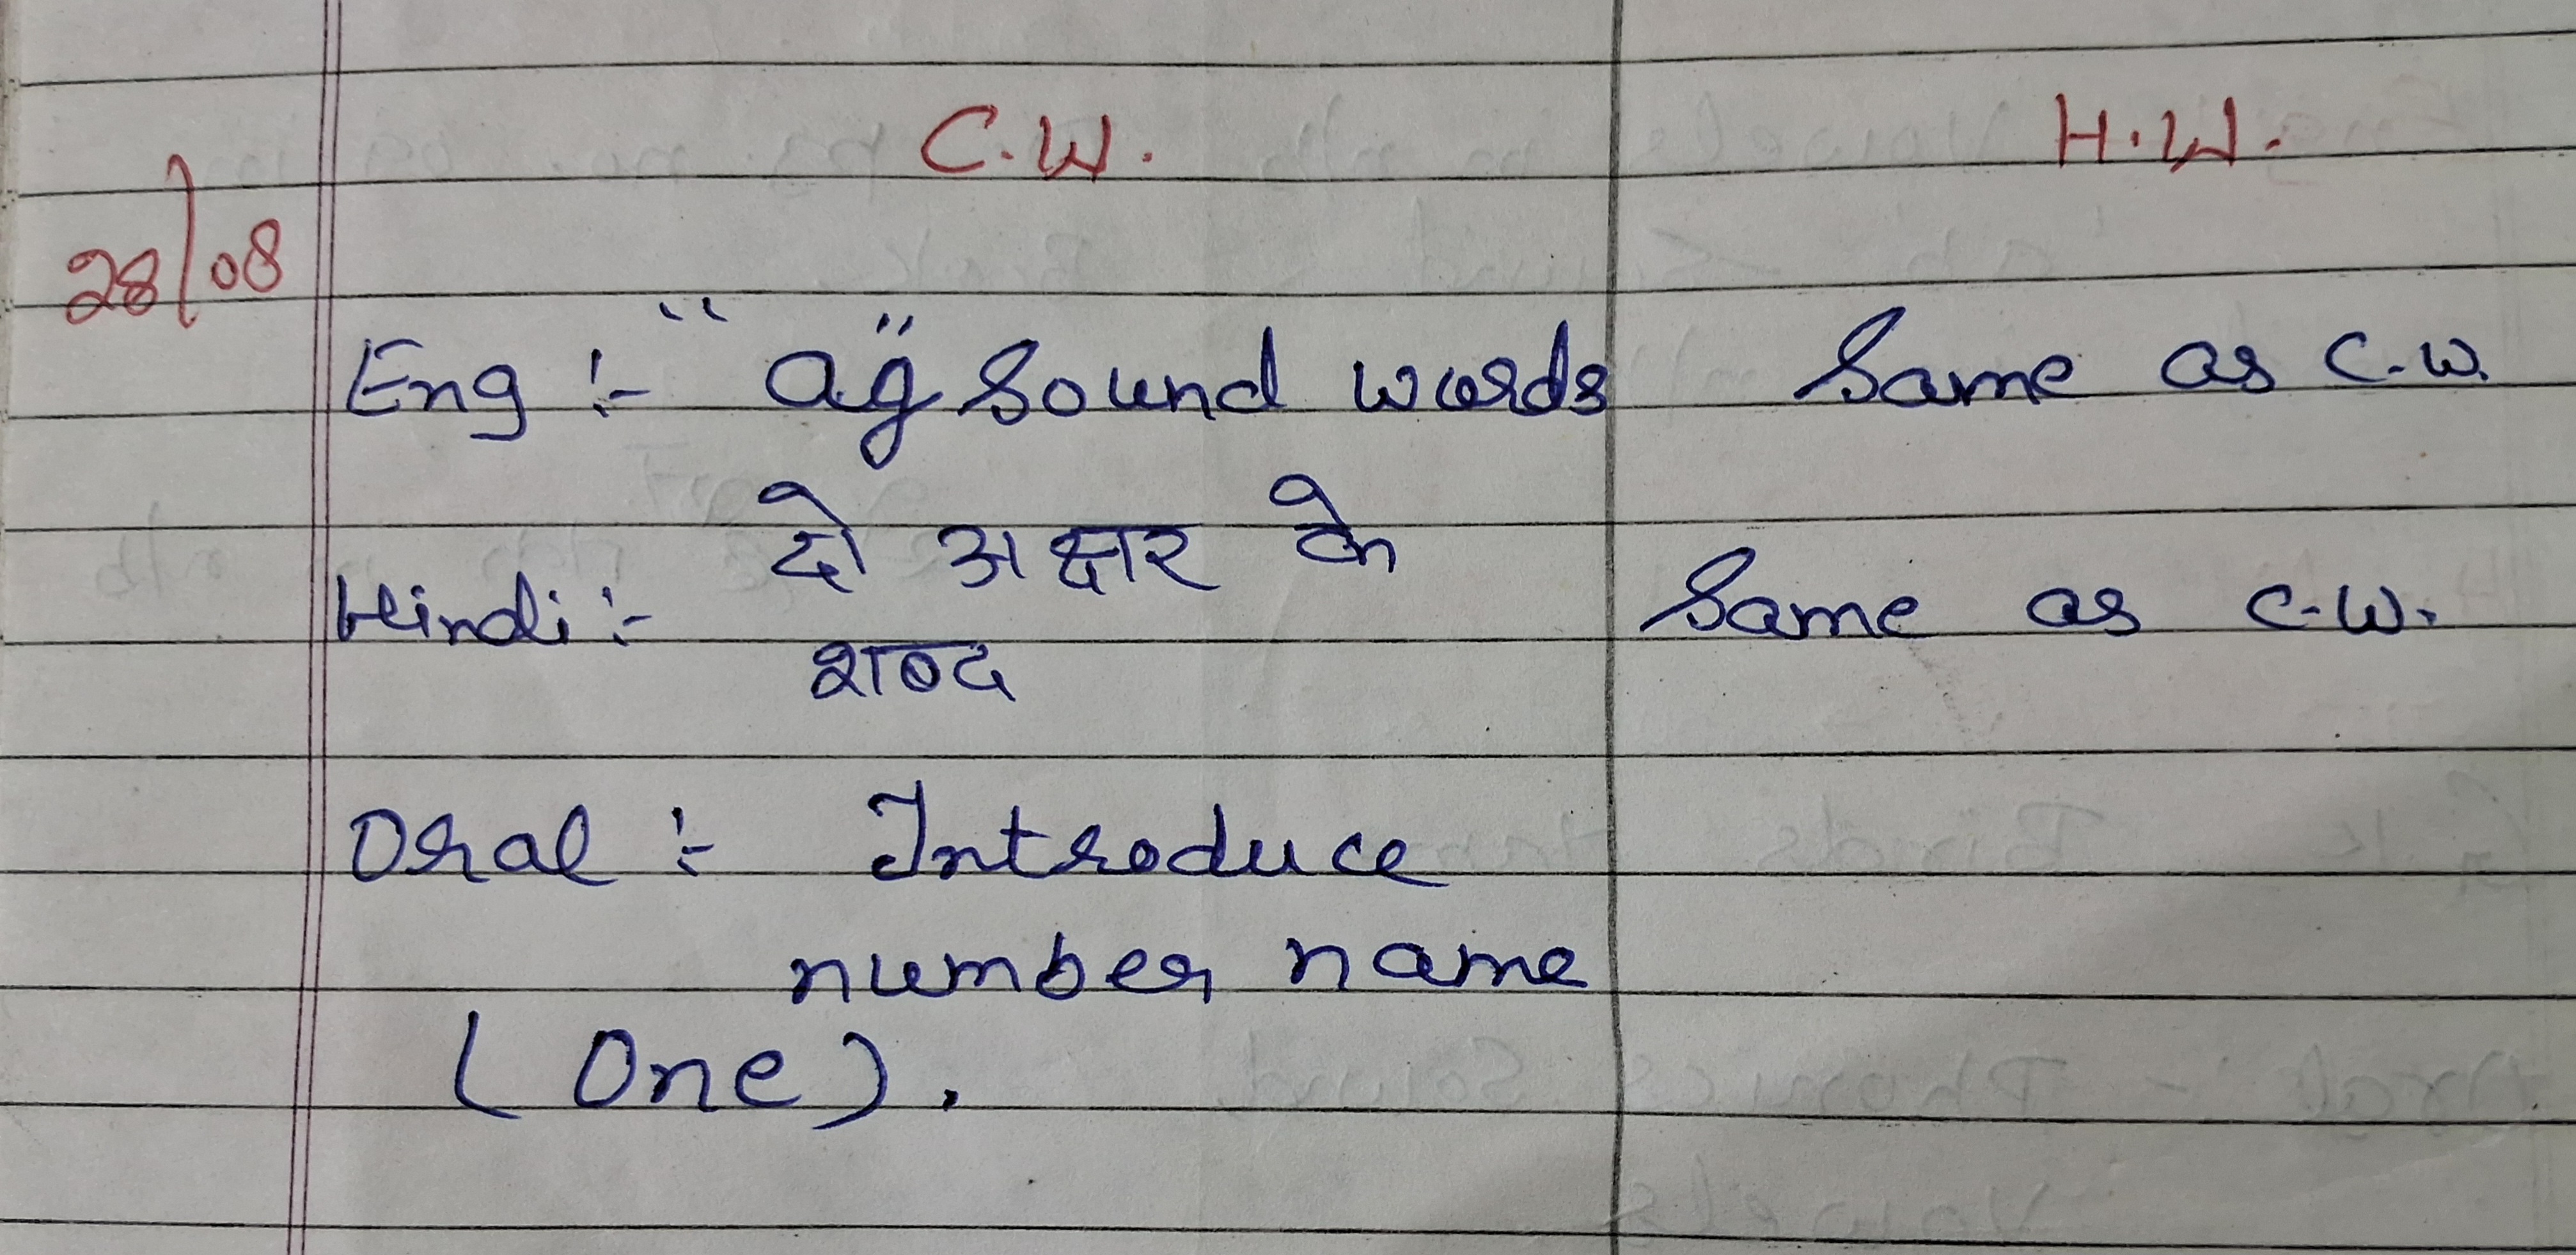 C.W. H.W.
28/08
Eng :- "ag" Sound words Same as C.W.
दो अक्षर के
Hindi :- Same as C.W.
शब्द
Oral :- Introduce
number name
(One).